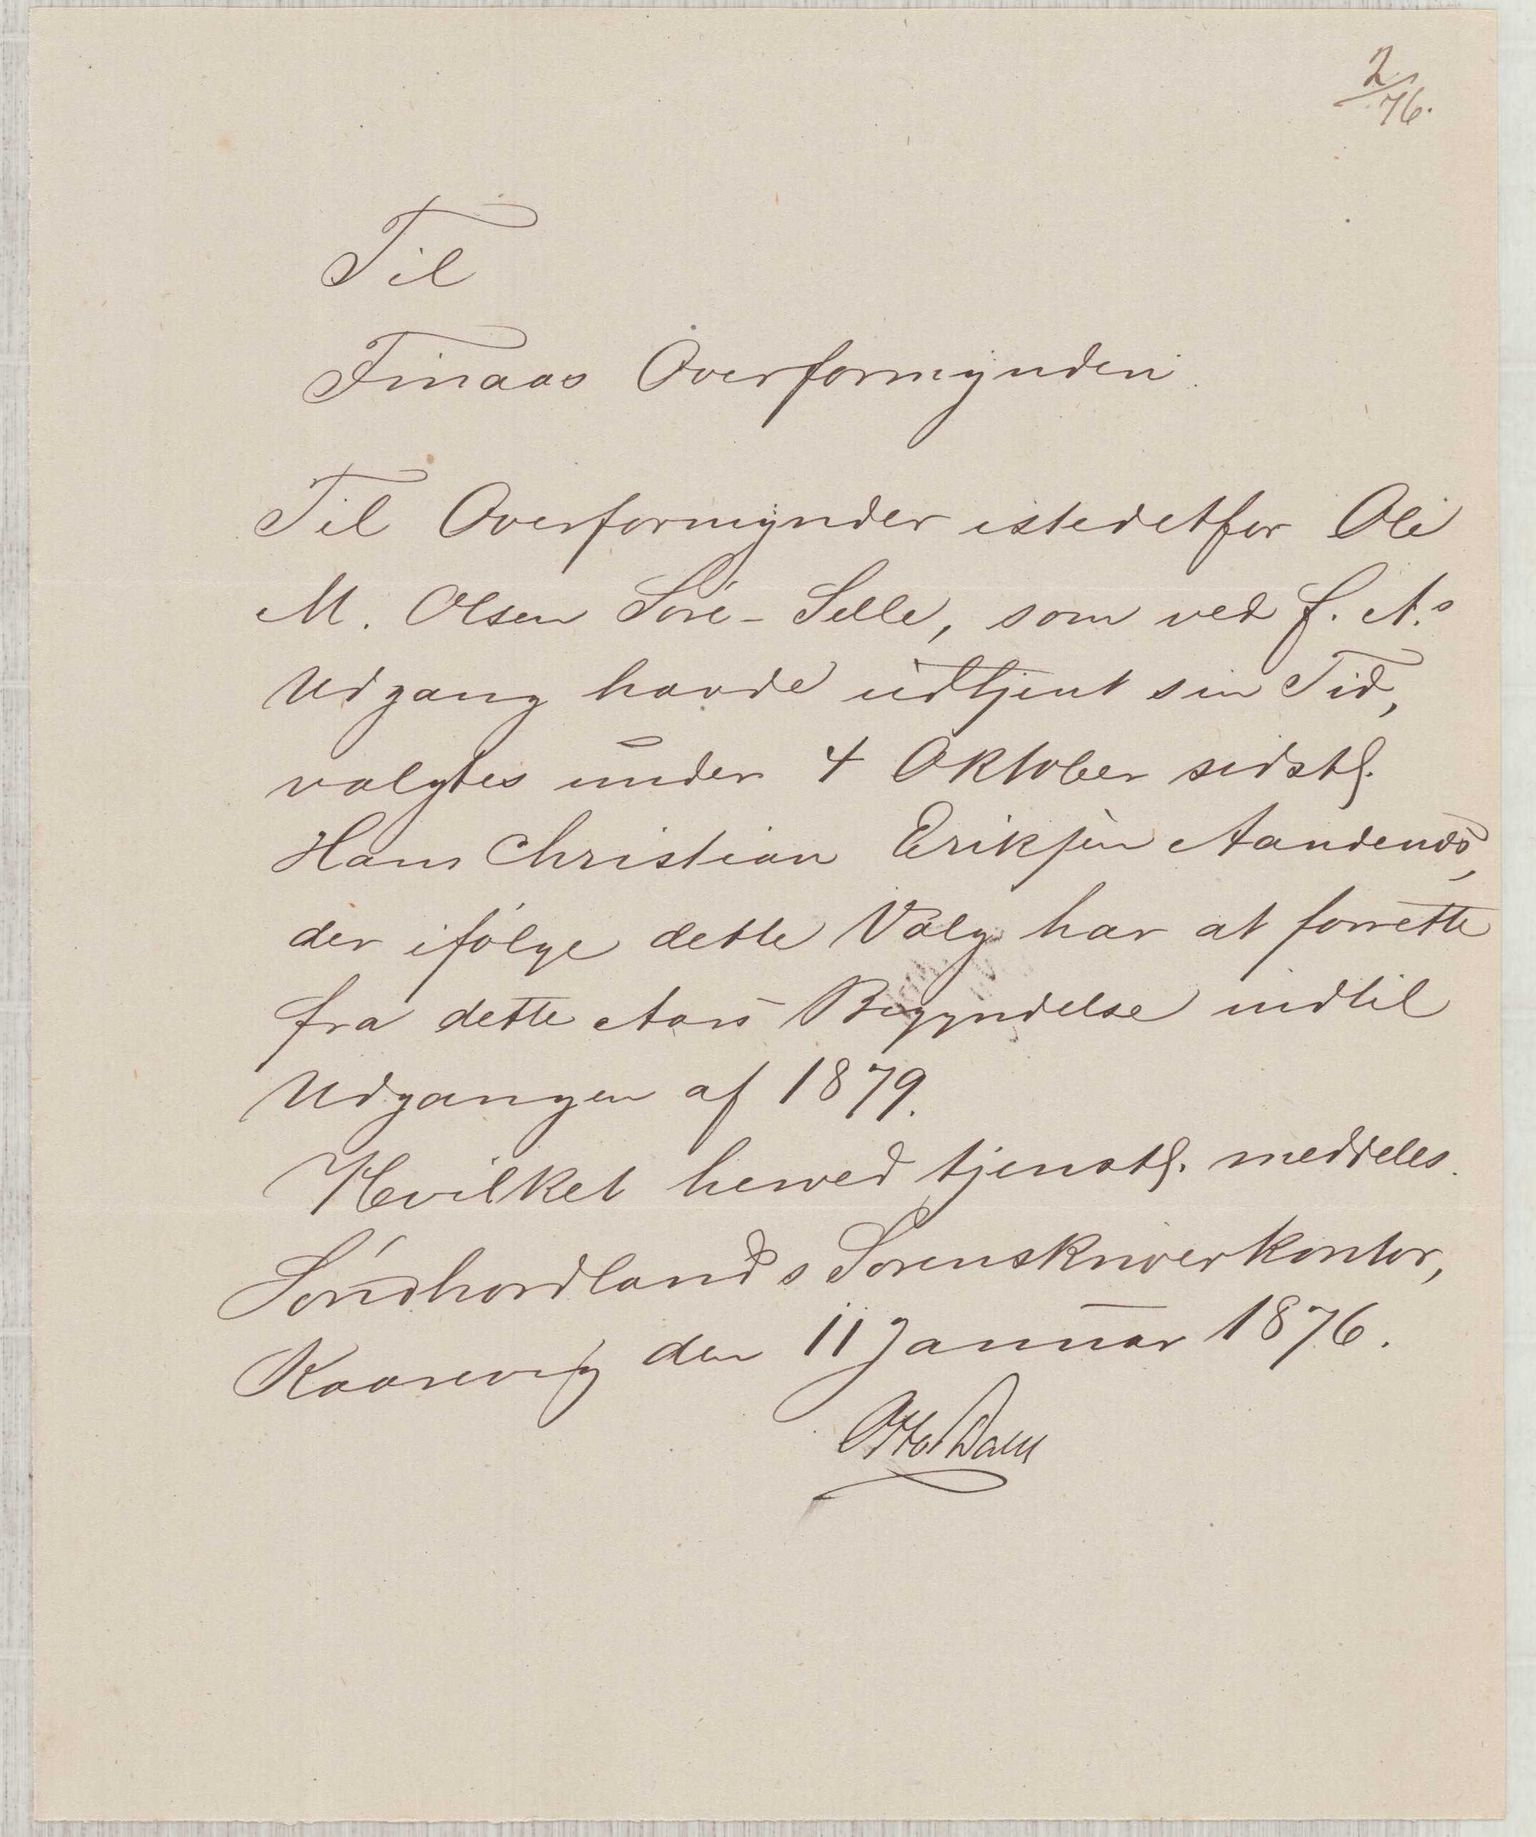 2/76.
Til
Finaas Overformynderi.
Til Overformynder istedetfor Ole
M. Olsen Söre-Selle, som ved f. A.s
Udgang havde udtjent sin Tid,
valgtes under 4 Oktober sidstl.
Hans Christian Eriksen Aandenes,
der ifölge dette Valg har at forrette
fra dette Aars Begyndelse indtil
Udgangen af 1879.
Hvilket herved tjenstl. meddeles.
Söndhordlands Sorenskriverkontor,
Kaarevig den 11 Januar 1876.
Otto Dahl